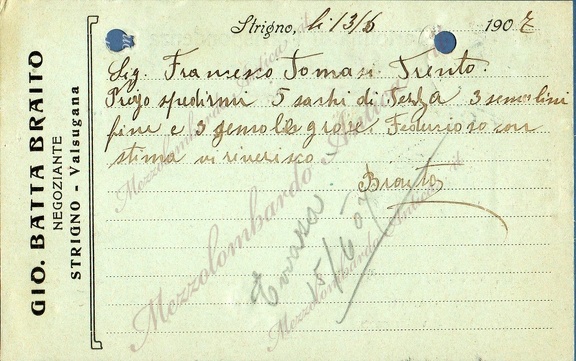 GIO. BATTA BRAITO
NEGOZIANTE
STRIGNO - Valsugana
Strigno, li 13/6 1907
Sig. Francesco Tomasi Trento.
Prego spedirmi 5 sachi di Terza 3 semolini
fine e 3 semola grose
con
stima vi riverisco
Braito
Evasa
15/6 07
Mezzolombardo
Mezzolombardo
Mezzolombardo